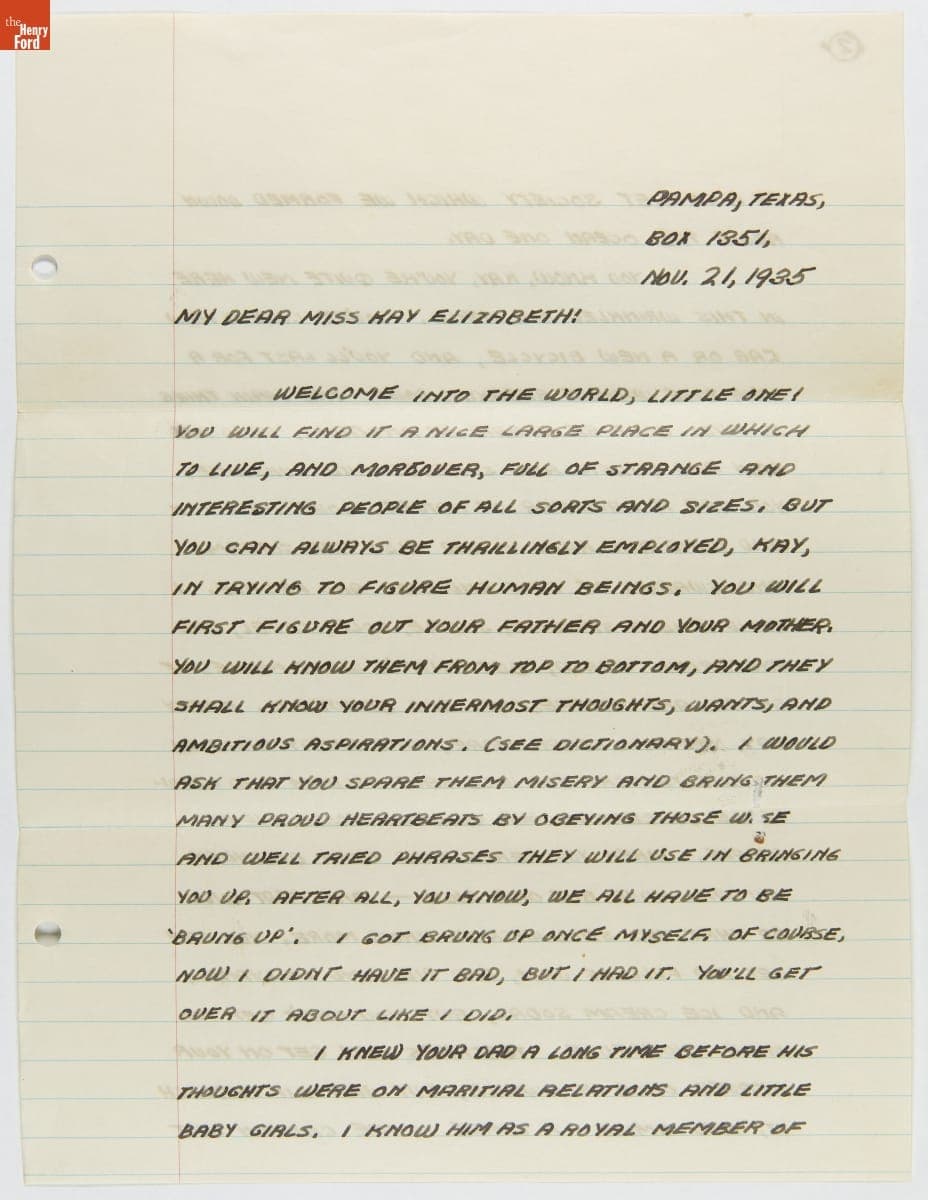 the
Henry
Ford
PAMPA, TEXAS,
BOX 1351,
NOV. 21, 1935
MY DEAR MISS KAY ELIZABETH!
WELCOME INTO THE WORLD, LITTLE ONE!
YOU WILL FIND IT A NICE LARGE PLACE IN WHICH
TO LIVE, AND MOREOVER, FULL OF STRANGE AND
INTERESTING PEOPLE OF ALL SORTS AND SIZES. BUT
YOU CAN ALWAYS BE THRILLINGLY EMPLOYED, KAY,
IN TRYING TO FIGURE HUMAN BEINGS. YOU WILL
FIRST FIGURE OUT YOUR FATHER AND YOUR MOTHER.
YOU WILL KNOW THEM FROM TOP TO BOTTOM, AND THEY
SHALL KNOW YOUR INNERMOST THOUGHTS, WANTS, AND
AMBITIOUS ASPIRATIONS. (SEE DICTIONARY). I WOULD
ASK THAT YOU SPARE THEM MISERY AND BRING THEM
MANY PROUD HEARTBEATS BY OBEYING THOSE WISE
AND WELL TRIED PHRASES THEY WILL USE IN BRINGING
YOU UP. AFTER ALL, YOU KNOW, WE ALL HAVE TO BE
'BRUNG UP'. I GOT BRUNG UP ONCE MYSELF. OF COURSE,
NOW I DIDNT HAVE IT BAD, BUT I HAD IT. YOU'LL GET
OVER IT ABOUT LIKE I DID.
I KNEW YOUR DAD A LONG TIME BEFORE HIS
THOUGHTS WERE ON MARITIAL RELATIONS AND LITTLE
BABY GIRLS. I KNOW HIM AS A ROYAL MEMBER OF